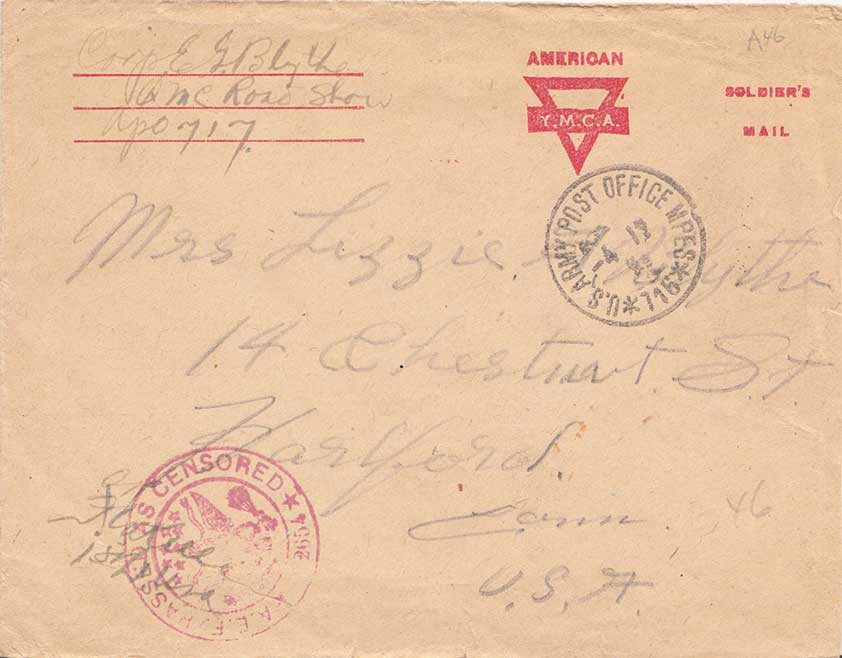 Corp. E. G. Blythe
QMC Road Show
Apo 717.
A46
AMERICAN
Y.M.C.A.
SOLDIER'S
MAIL
U.S. ARMY POST OFFICE MPES * 716 *
Mrs Lizzie Blythe
14 Chestnut St.
Hartford.
Conn.
U. S. A.
46
A.E.F. PASSED AS CENSORED ★ 2654
1st